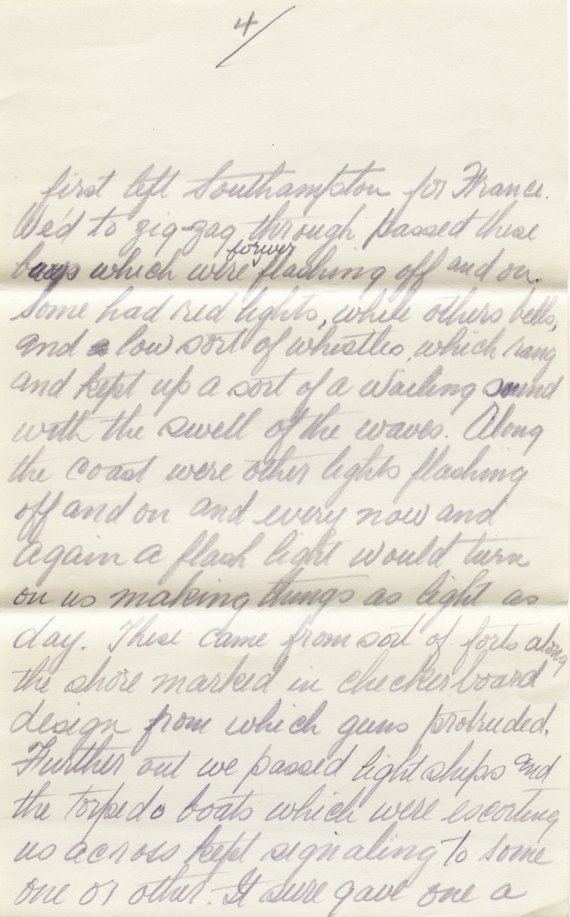 4/
first left Southampton for France.
We'd to zig-zag through passed these
buoys which were forever flashing off and on.
Some had red lights, while others bells,
and a low sort of whistles, which rang
and kept up a sort of a wailing sound
with the swell of the waves. Along
the coast were other lights flashing
off and on and every now and
again a flash light would turn
on us making things as light as
day. These came from sort of forts along
the shore marked in checkerboard
design from which guns protruded.
Further out we passed light ships and
the torpedo boats which were escorting
us across kept signaling to some
one or other. It sure gave one a